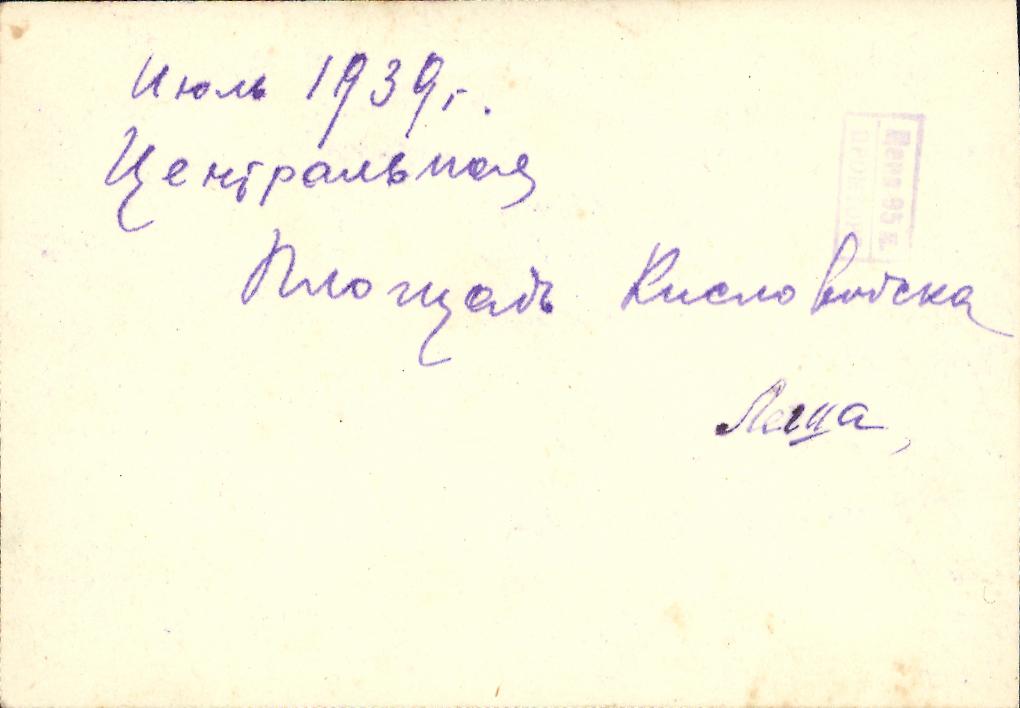 Июль 1939 г.
Центральная
Площадь Кисловодска
Леша,